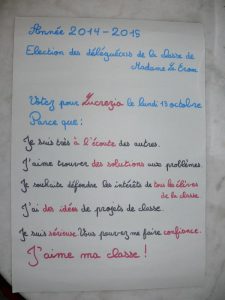 Année 2014-2015
Election des délégué(e)s de la classe de
Madame Le
Votez pour Lucrezia le lundi 13 octobre
Parce que :
Je suis très à l'écoute des autres.
J'aime trouver des solutions aux problèmes.
Je souhaite défendre les intérêts de tous les élèves
de la classe.
J'ai des idées de projets de classe.
Je suis sérieuse. Vous pouvez me faire confiance.
J'aime ma classe !